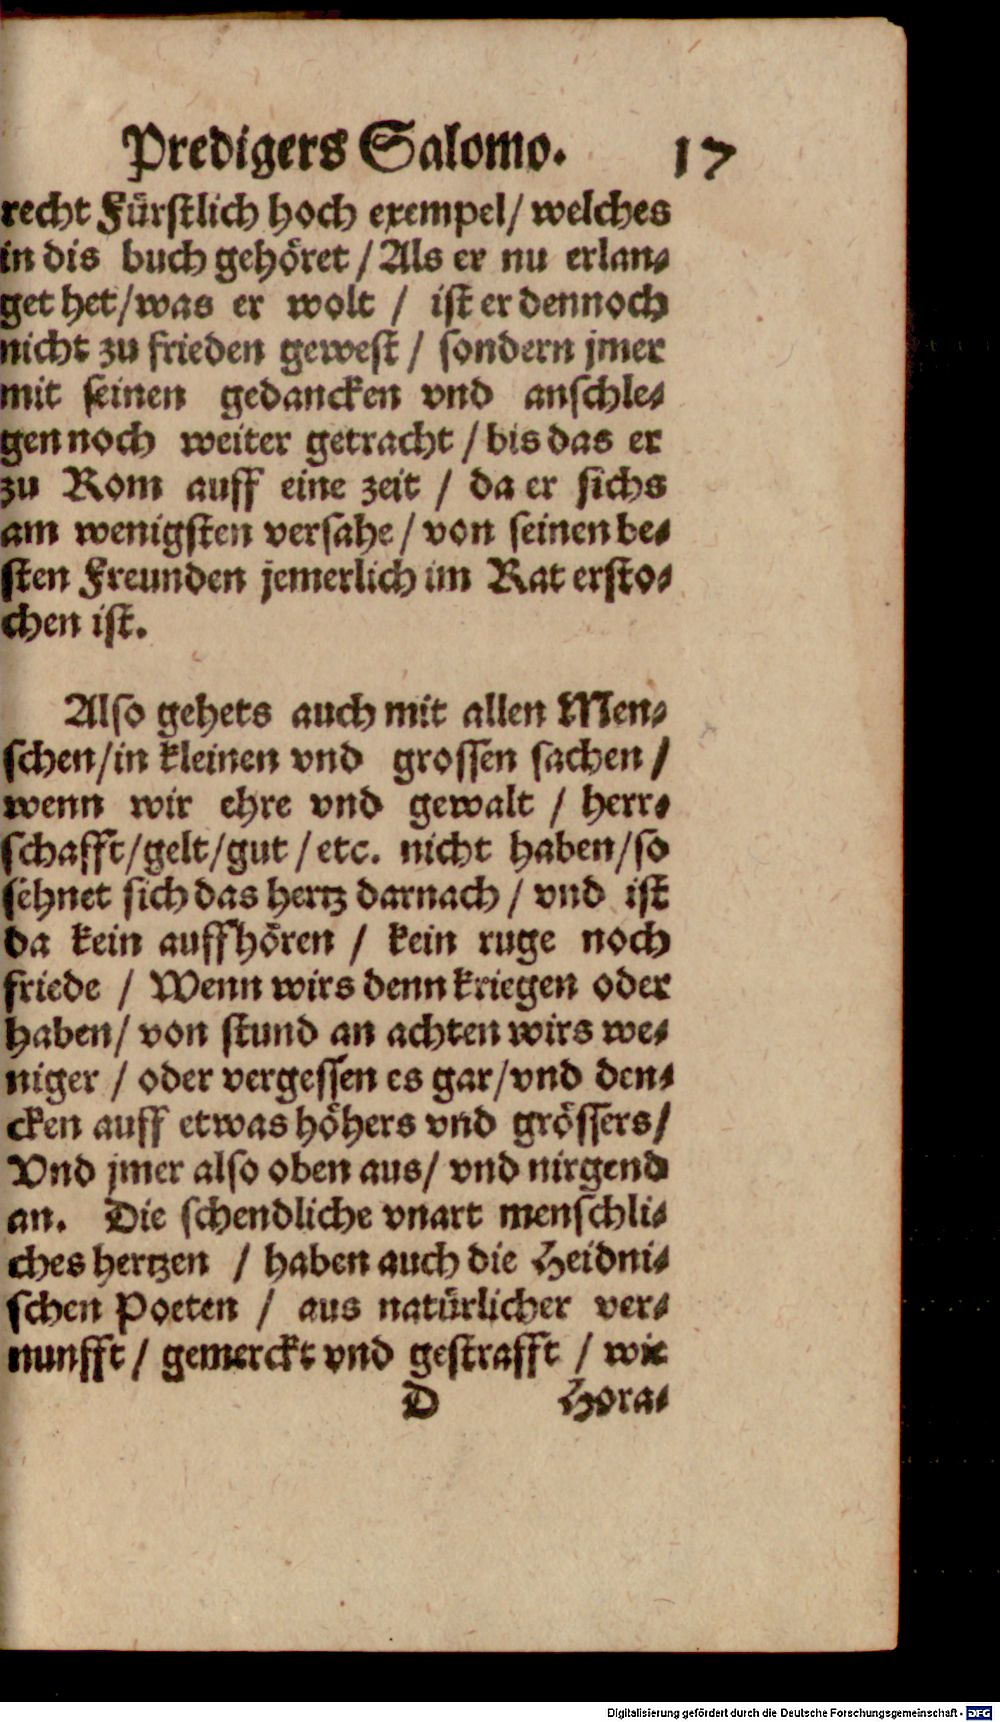 Predigers Salomo. 17
recht Fürstlich hoch exempel / welches
in dis buch gehöret / Als er nu erlan-
get het / was er wolt / ist er dennoch
nicht zu frieden gewest / sondern jmer
mit seinen gedancken vnd anschle-
gen noch weiter getracht / bis das er
zu Rom auff eine zeit / da er sichs
am wenigsten versahe / von seinen be-
sten Freunden jemerlich im Rat ersto-
chen ist.
Also gehets auch mit allen Men-
schen / in kleinen vnd grossen sachen /
wenn wir ehre vnd gewalt / herr-
schafft / gelt / gut / etc. nicht haben / so
sehnet sich das hertz darnach / vnd ist
da kein auffhören / kein ruge noch
friede / Wenn wirs denn kriegen oder
haben / von stund an achten wirs we-
niger / oder vergessen es gar / vnd den-
cken auff etwas höhers vnd grössers /
Vnd jmer also oben aus / vnd nirgend
an. Die schendliche vnart menschli-
ches hertzen / haben auch die Heidni-
schen Poeten / aus natürlicher ver-
nunfft / gemerckt vnd gestrafft / wie
D Hora-
Digitalisierung gefördert durch die Deutsche Forschungsgemeinschaft - DFG